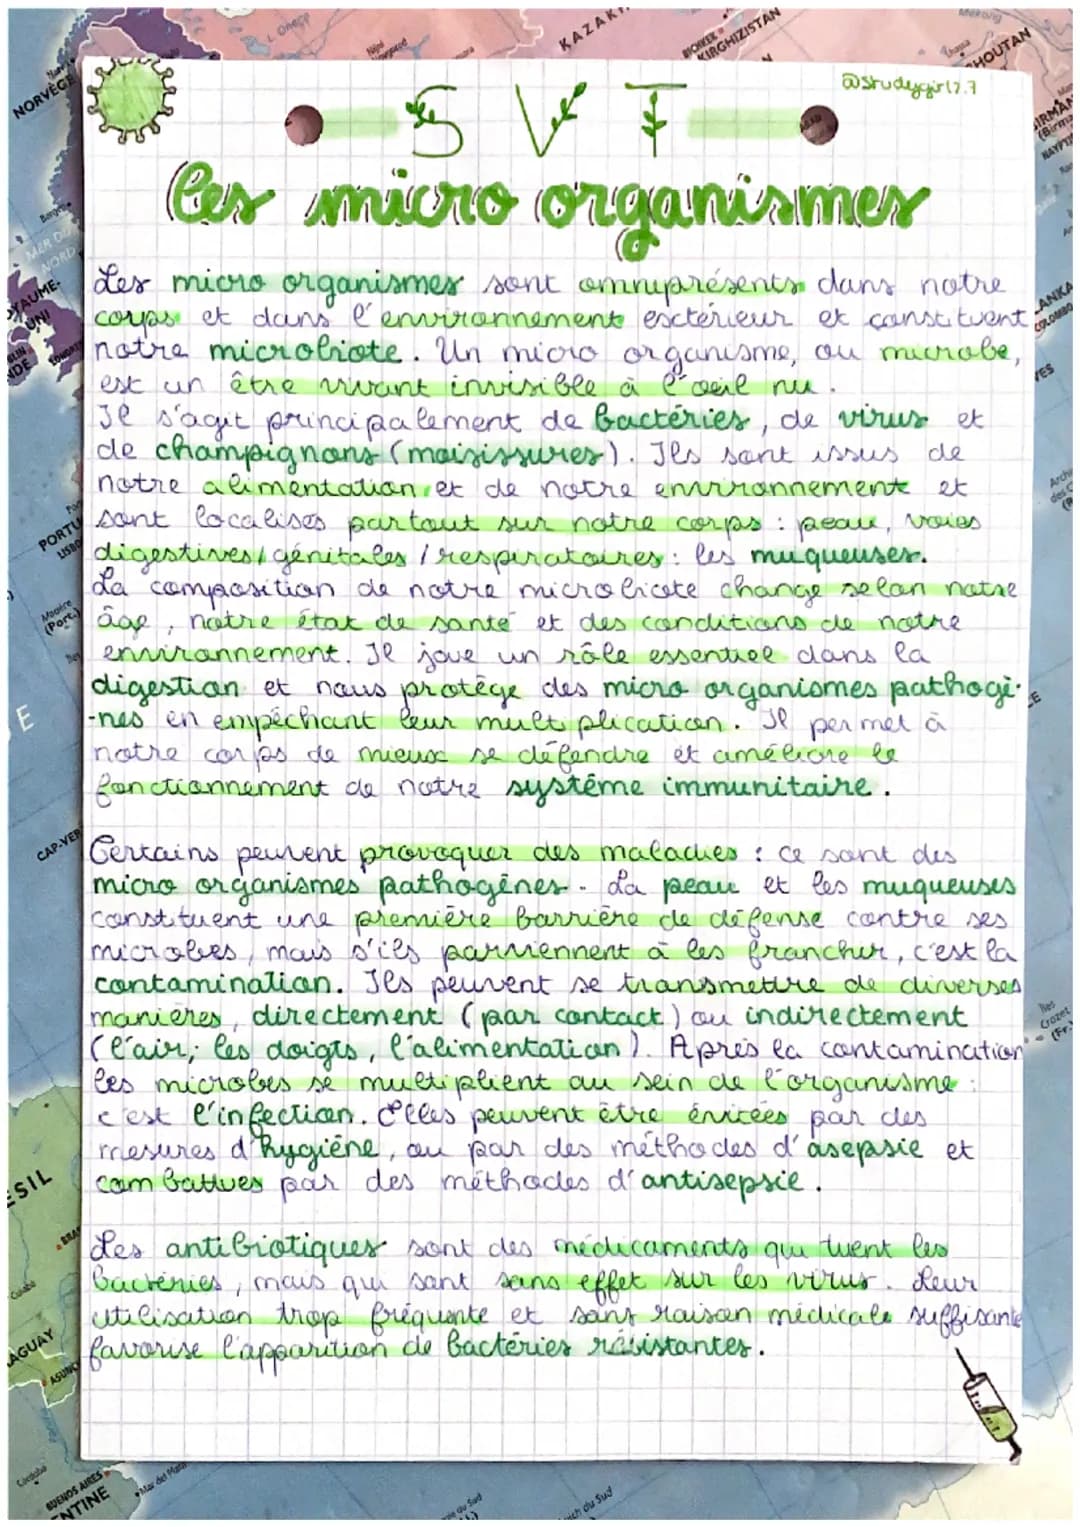 @studygirl7.7
S V T
les micro organismes
Les micro organismes sont omniprésents dans notre
corps et dans l'environnement esctérieur et constituent
notre microbiote. Un micro organisme, ou microbe,
est un être vivant invisible à l'oeil nu.
Il s'agit principalement de bactéries, de virus et
de champignons (moisissures). Ils sont issus de
notre alimentation et de notre environnement et
sont localisés partout sur notre corps : peau, voies
digestives/génitales/respiratoires : les muqueuses.
La composition de notre microbiote change selon notre
âge, notre état de santé et des conditions de notre
environnement. Il joue un rôle essentiel dans la
digestion et nous protège des micro organismes pathogè-
-nes en empêchant leur multiplication. Il permet à
notre corps de mieux se défendre et améliore le
fonctionnement de notre système immunitaire.
Certains peuvent provoquer des maladies : ce sont des
micro organismes pathogènes. La peau et les muqueuses
constituent une première barrière de défense contre ses
microbes, mais s'ils parviennent à les franchir, c'est la
contamination. Ils peuvent se transmettre de diverses
manières, directement (par contact) ou indirectement
(l'air, les doigts, l'alimentation). Après la contamination
les microbes se multiplient au sein de l'organisme :
c'est l'infection. Elles peuvent être évitées par des
mesures d'hygiène, ou par des méthodes d'asepsie et
combattues par des méthodes d'antisepsie.
Les antibiotiques sont des médicaments qui tuent les
bactéries, mais qui sont sans effet sur les virus. Leur
utilisation trop fréquente et sans raison médicale suffisante
favorise l'apparition de bactéries résistantes.
NORVÈGE
L. Onega
KAZAK
KIRGHIZISTAN
Mekong
Lhassa
BHOUTAN
MER DU
NORD
CAP-VER
BUENOS AIRES
Mar del Plata
Îles
Crozet
(Fr.)